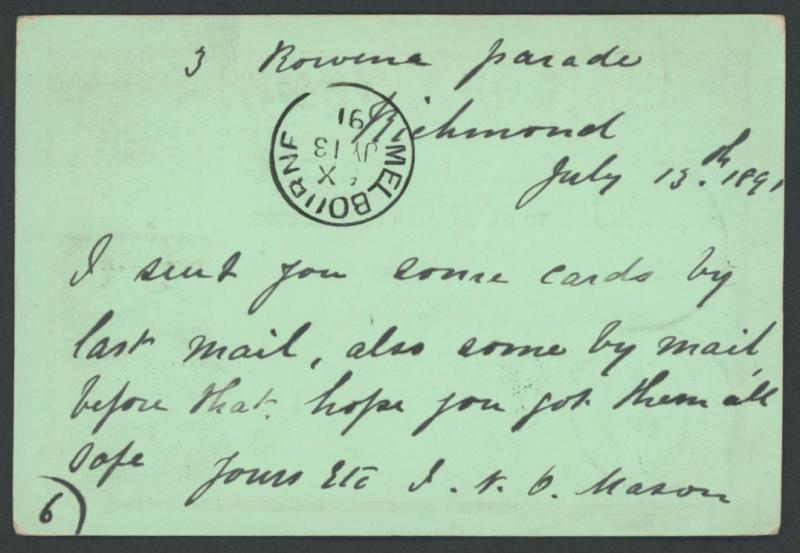 3 Rowena parade
Richmond
July 13.th 1891
MELBOURNE
X
JY 13
91
I sent you some cards by
last mail, also some by mail
before that. hope you got them all
safe
Yours Etc J. V. O. Mason
6